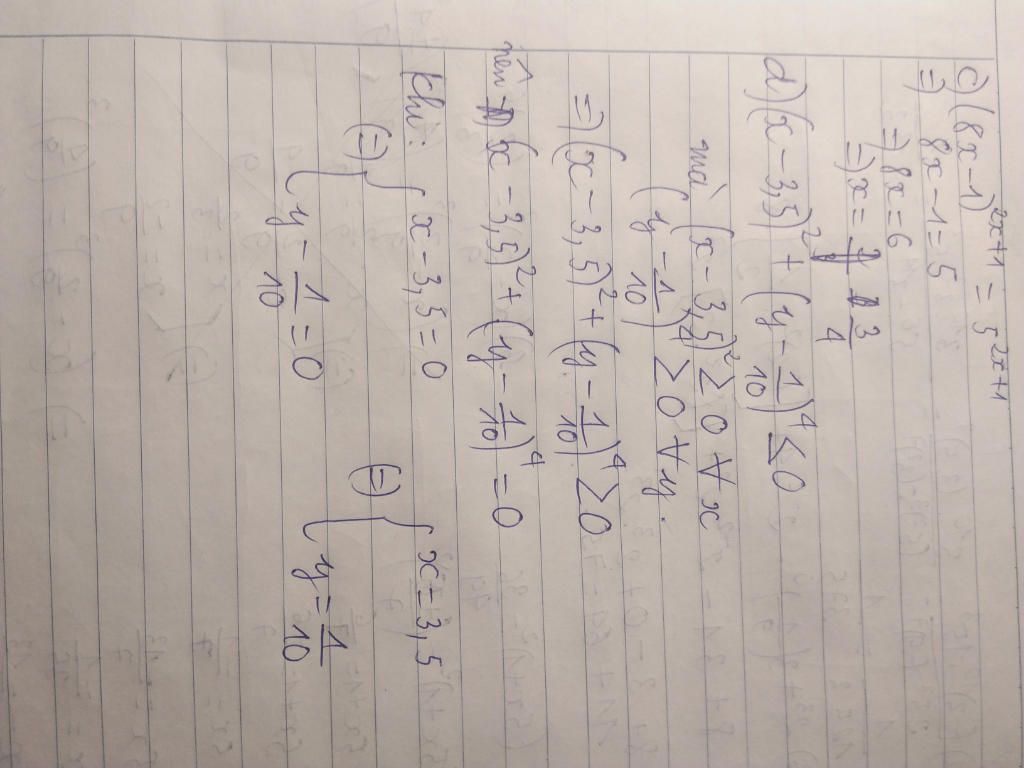 c) (8x-1)^{2x+1} = 5^{2x+1}
=) 8x-1=5
=) 8x=6
=) x= 3/4
d) (x-3,5)^2 + (y-1/10)^4 ≤ 0
mà (x-3,5)^2 ≥ 0 ∀ x
(y-1/10)^4 ≥ 0 ∀ y.
=) (x-3,5)^2 + (y-1/10)^4 ≥ 0
nên (x-3,5)^2 + (y-1/10)^4 = 0
khi: { x-3,5=0 (=) { x=3,5
(=) { y-1/10=0 { y=1/10